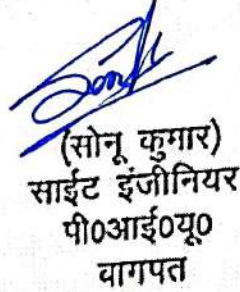 (सोनू कुमार)
साईट इंजीनियर
पी0आई0यू0
वागपत